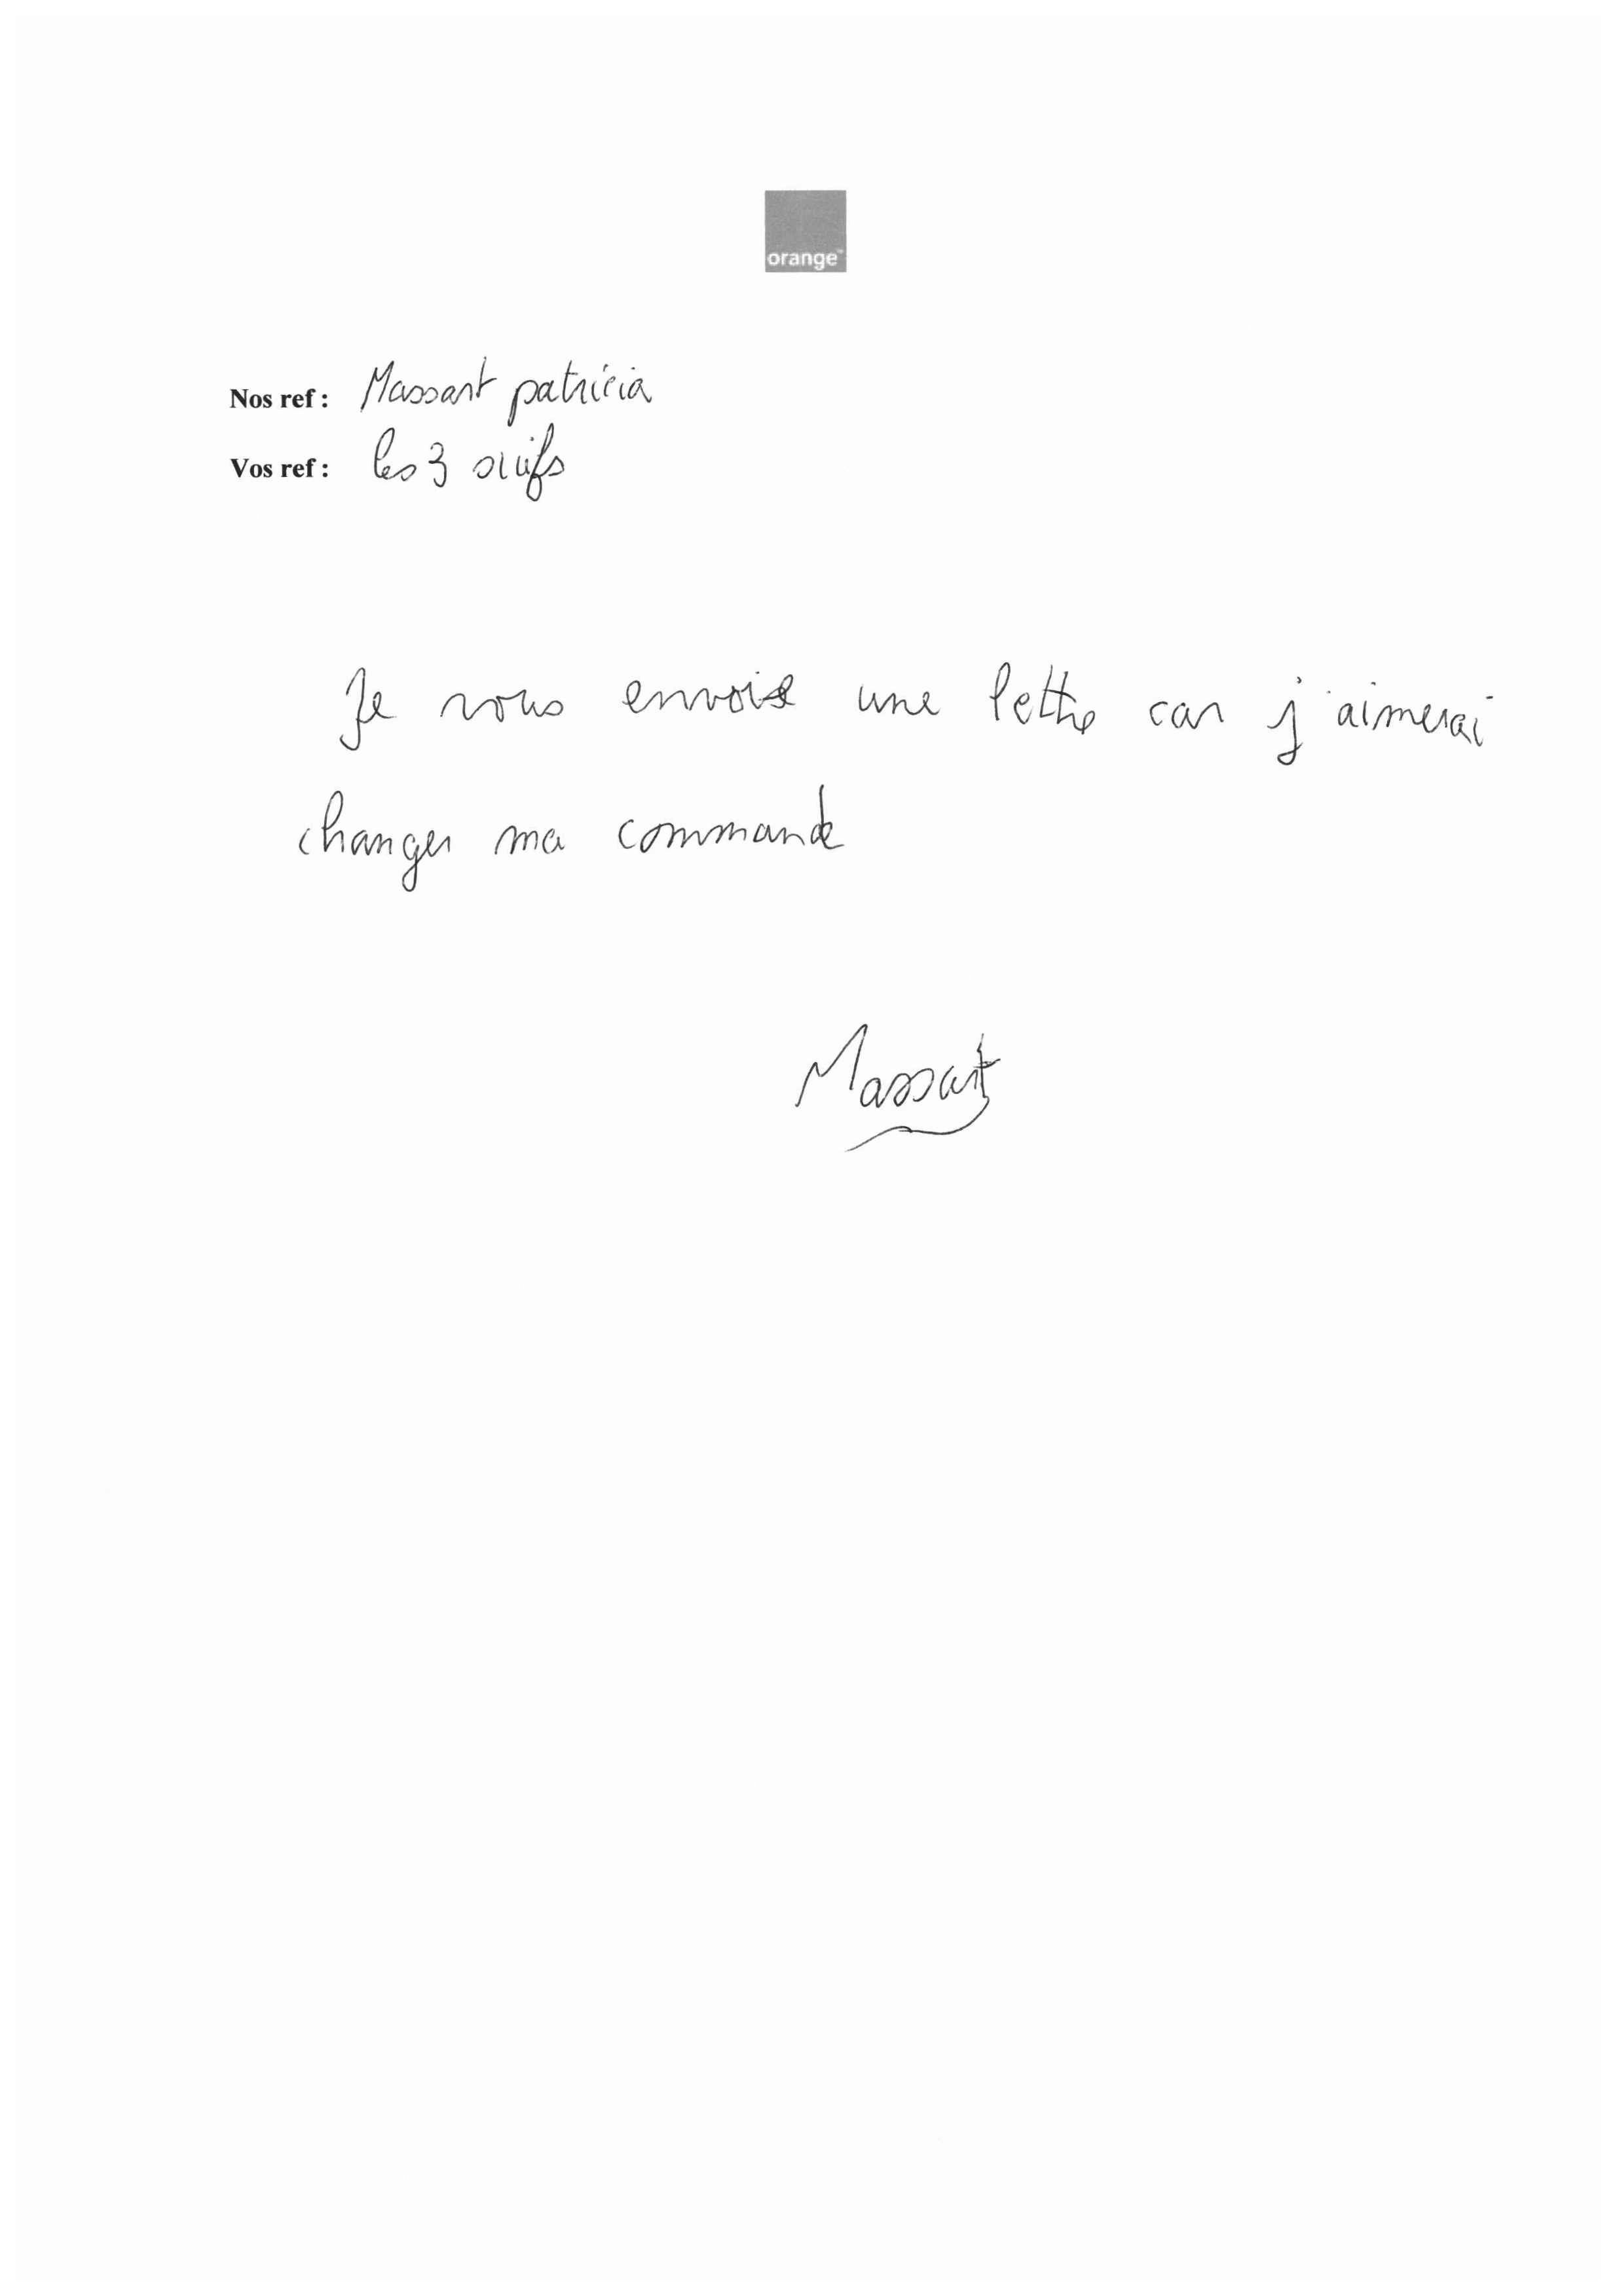 orange™
Nos ref : Massart patricia
Vos ref : les 3 suifs
Je vous envoie une lettre car j'aimerai
changer ma commande
Massart